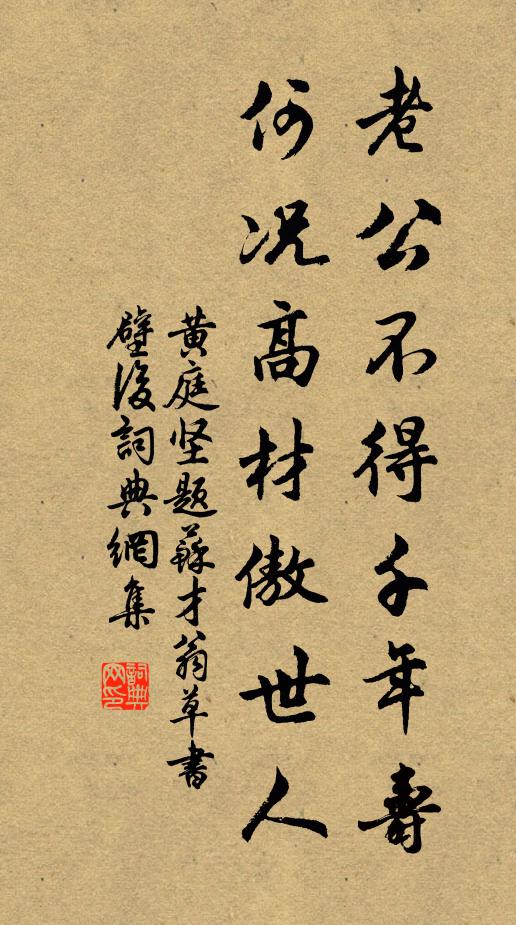 老公不得千年壽
何况高材傲世人
黄庭坚题蘇才翁草書
壁後詞典網集
詞典
网印